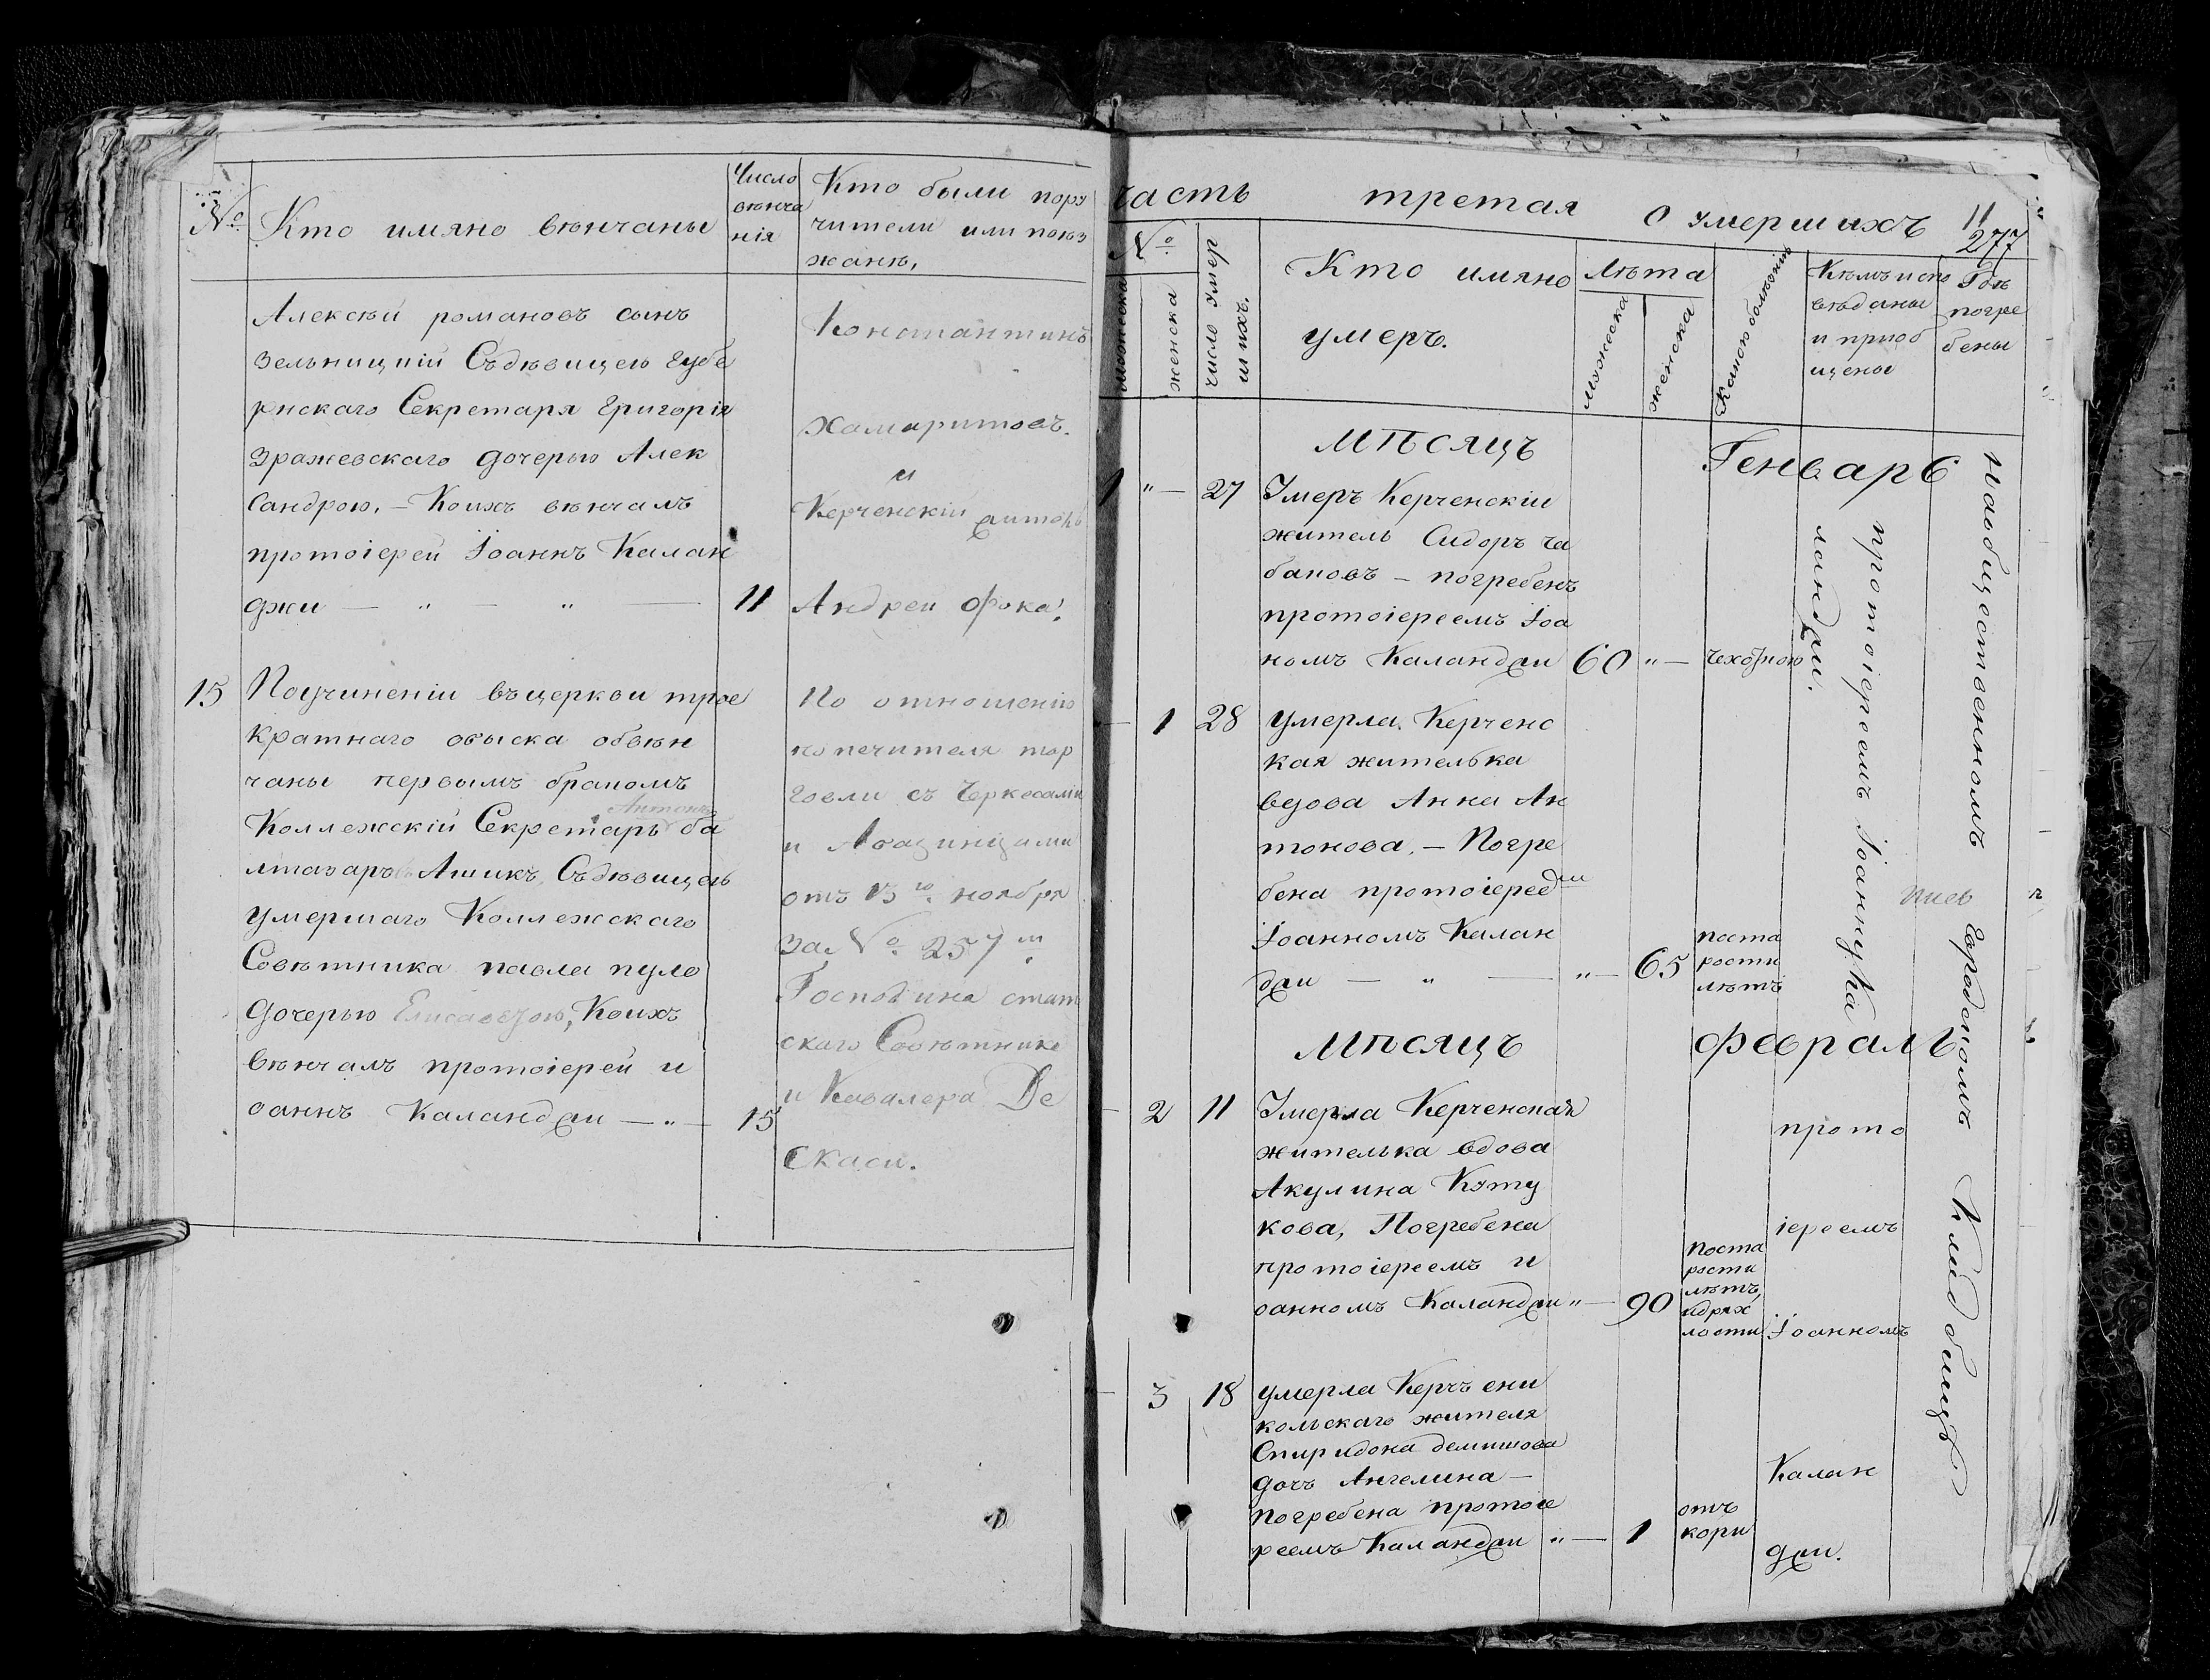 №
Кто имяно вѣнчаны
Число
вѣнча
нія
Кто были пору
чители или поѣз
жанѣ,
Алексѣй романовъ сынъ
Зельницкій Съдѣвицею губе
рнскаго Секретаря григорія
Зражевскаго дочерью Алек
сандрою, – Коихъ вѣнчалъ
протоіерей Іоаннъ Калан
джи — „ — „ — 11
Константинъ
Хамаритовъ.
и
Керченскій
Андрей Фока.
15
Поучиненіи въцеркви трое
кратнаго обыска обвѣн
чаны первымъ бракомъ
Антонъ
Коллежскій Секретарь ба
лтазаровъ Ашикъ, Съдѣвицею
умершаго Коллежскаго
Совѣтника павла пуло
дочерью Елисаветою, Коихъ
вѣнчалъ протоіерей и
оаннъ Каланджи — „ — 15
По отношенію
попечителя тор
говли съ Черкесами
и Абазинцами
отъ 13го ноября
за № 257м
Господина стат
скаго Совѣтника
и Кавалера Де
Скаси.
часть третая о умершихъ 11
277
№
мужеска
женска
число умер
шихъ.
Кто имяно
умеръ.
Лѣта
мужеска
женска
Какою болѣзнію
Кѣмъ испо
вѣданы
и приоб
щены
Гдѣ
погре
бены
мѣсяцъ Генварь
1 „ — 27 Умеръ Керченскій
житель Сидоръ ча
бановъ – погребенъ
протоіереемъ Іоа
номъ Каланджи 60 „ — чехоткою
— 1 28 умерла Керченс
кая жителька
вдова Анна Ан
тонова. – Погре
бена протоіереемъ
Іоанномъ Калан
джи — „ — „ — 65
поста
рости
лѣтъ
мѣсяцъ февраль
— 2 11 Умерла Керченская
жителька вдова
Акулина Кэту
кова, Погребена
протоіереемъ и
оанномъ Каланджи „ — 90
поста
рости
лѣтъ
идрях
лости
— 3 18 умерла Керчъ ени
кольскаго жителя
Спиридона демишова
дочъ Ангелина —
погребена протоіе
реемъ Каланджи „ — 1
отъ
кори
протоіереемъ Іоанну Ка
ланджи.
прото
іереемъ
Іоанномъ
Калан
джи.
наобщественномъ городскомъ Кладбищѣ